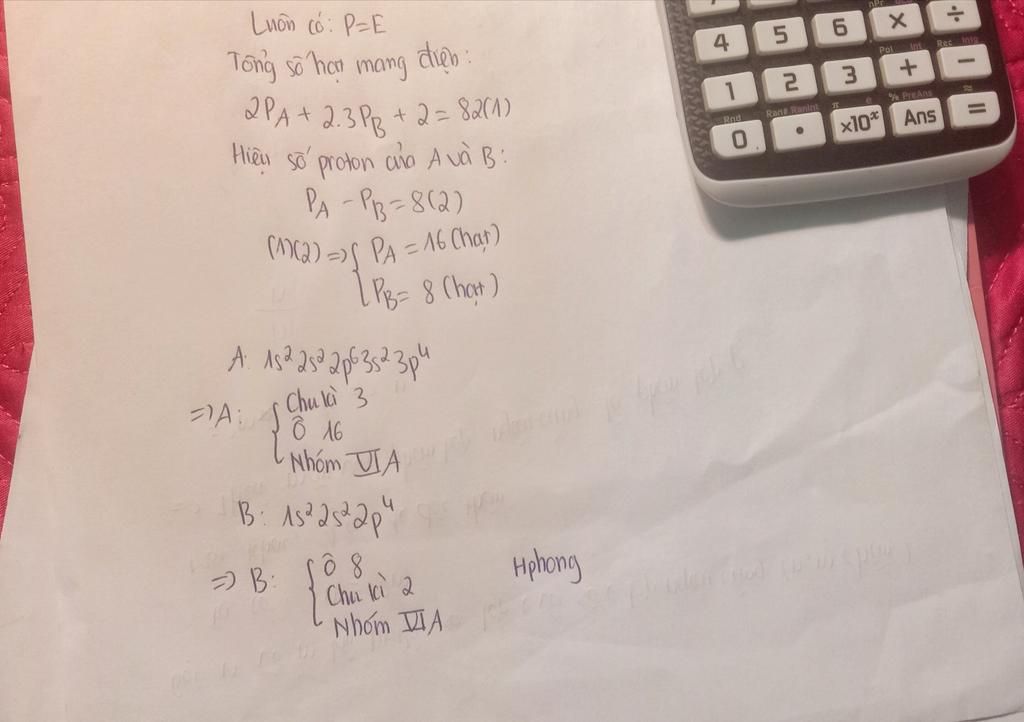 Luôn có: P=E
Tổng số hạt mang điện:
2P_A + 2.3P_B + 2 = 82(1)
Hiệu số proton của A và B:
P_A - P_B = 8(2)
(1)(2) => { P_A = 16 (hạt)
P_B = 8 (hạt)
A: 1s² 2s² 2p⁶ 3s² 3p⁴
=> A: { Chu kì 3
Ô 16
Nhóm VIA
B: 1s² 2s² 2p⁴
=> B: { Ô 8
Chu kì 2
Nhóm VIA
Hphong
4 5 6 × ÷
1 2 3 + −
0 . ×10ˣ Ans =
Pol Int Rec
Rnd Ran# RanInt π e % PreAns ≈